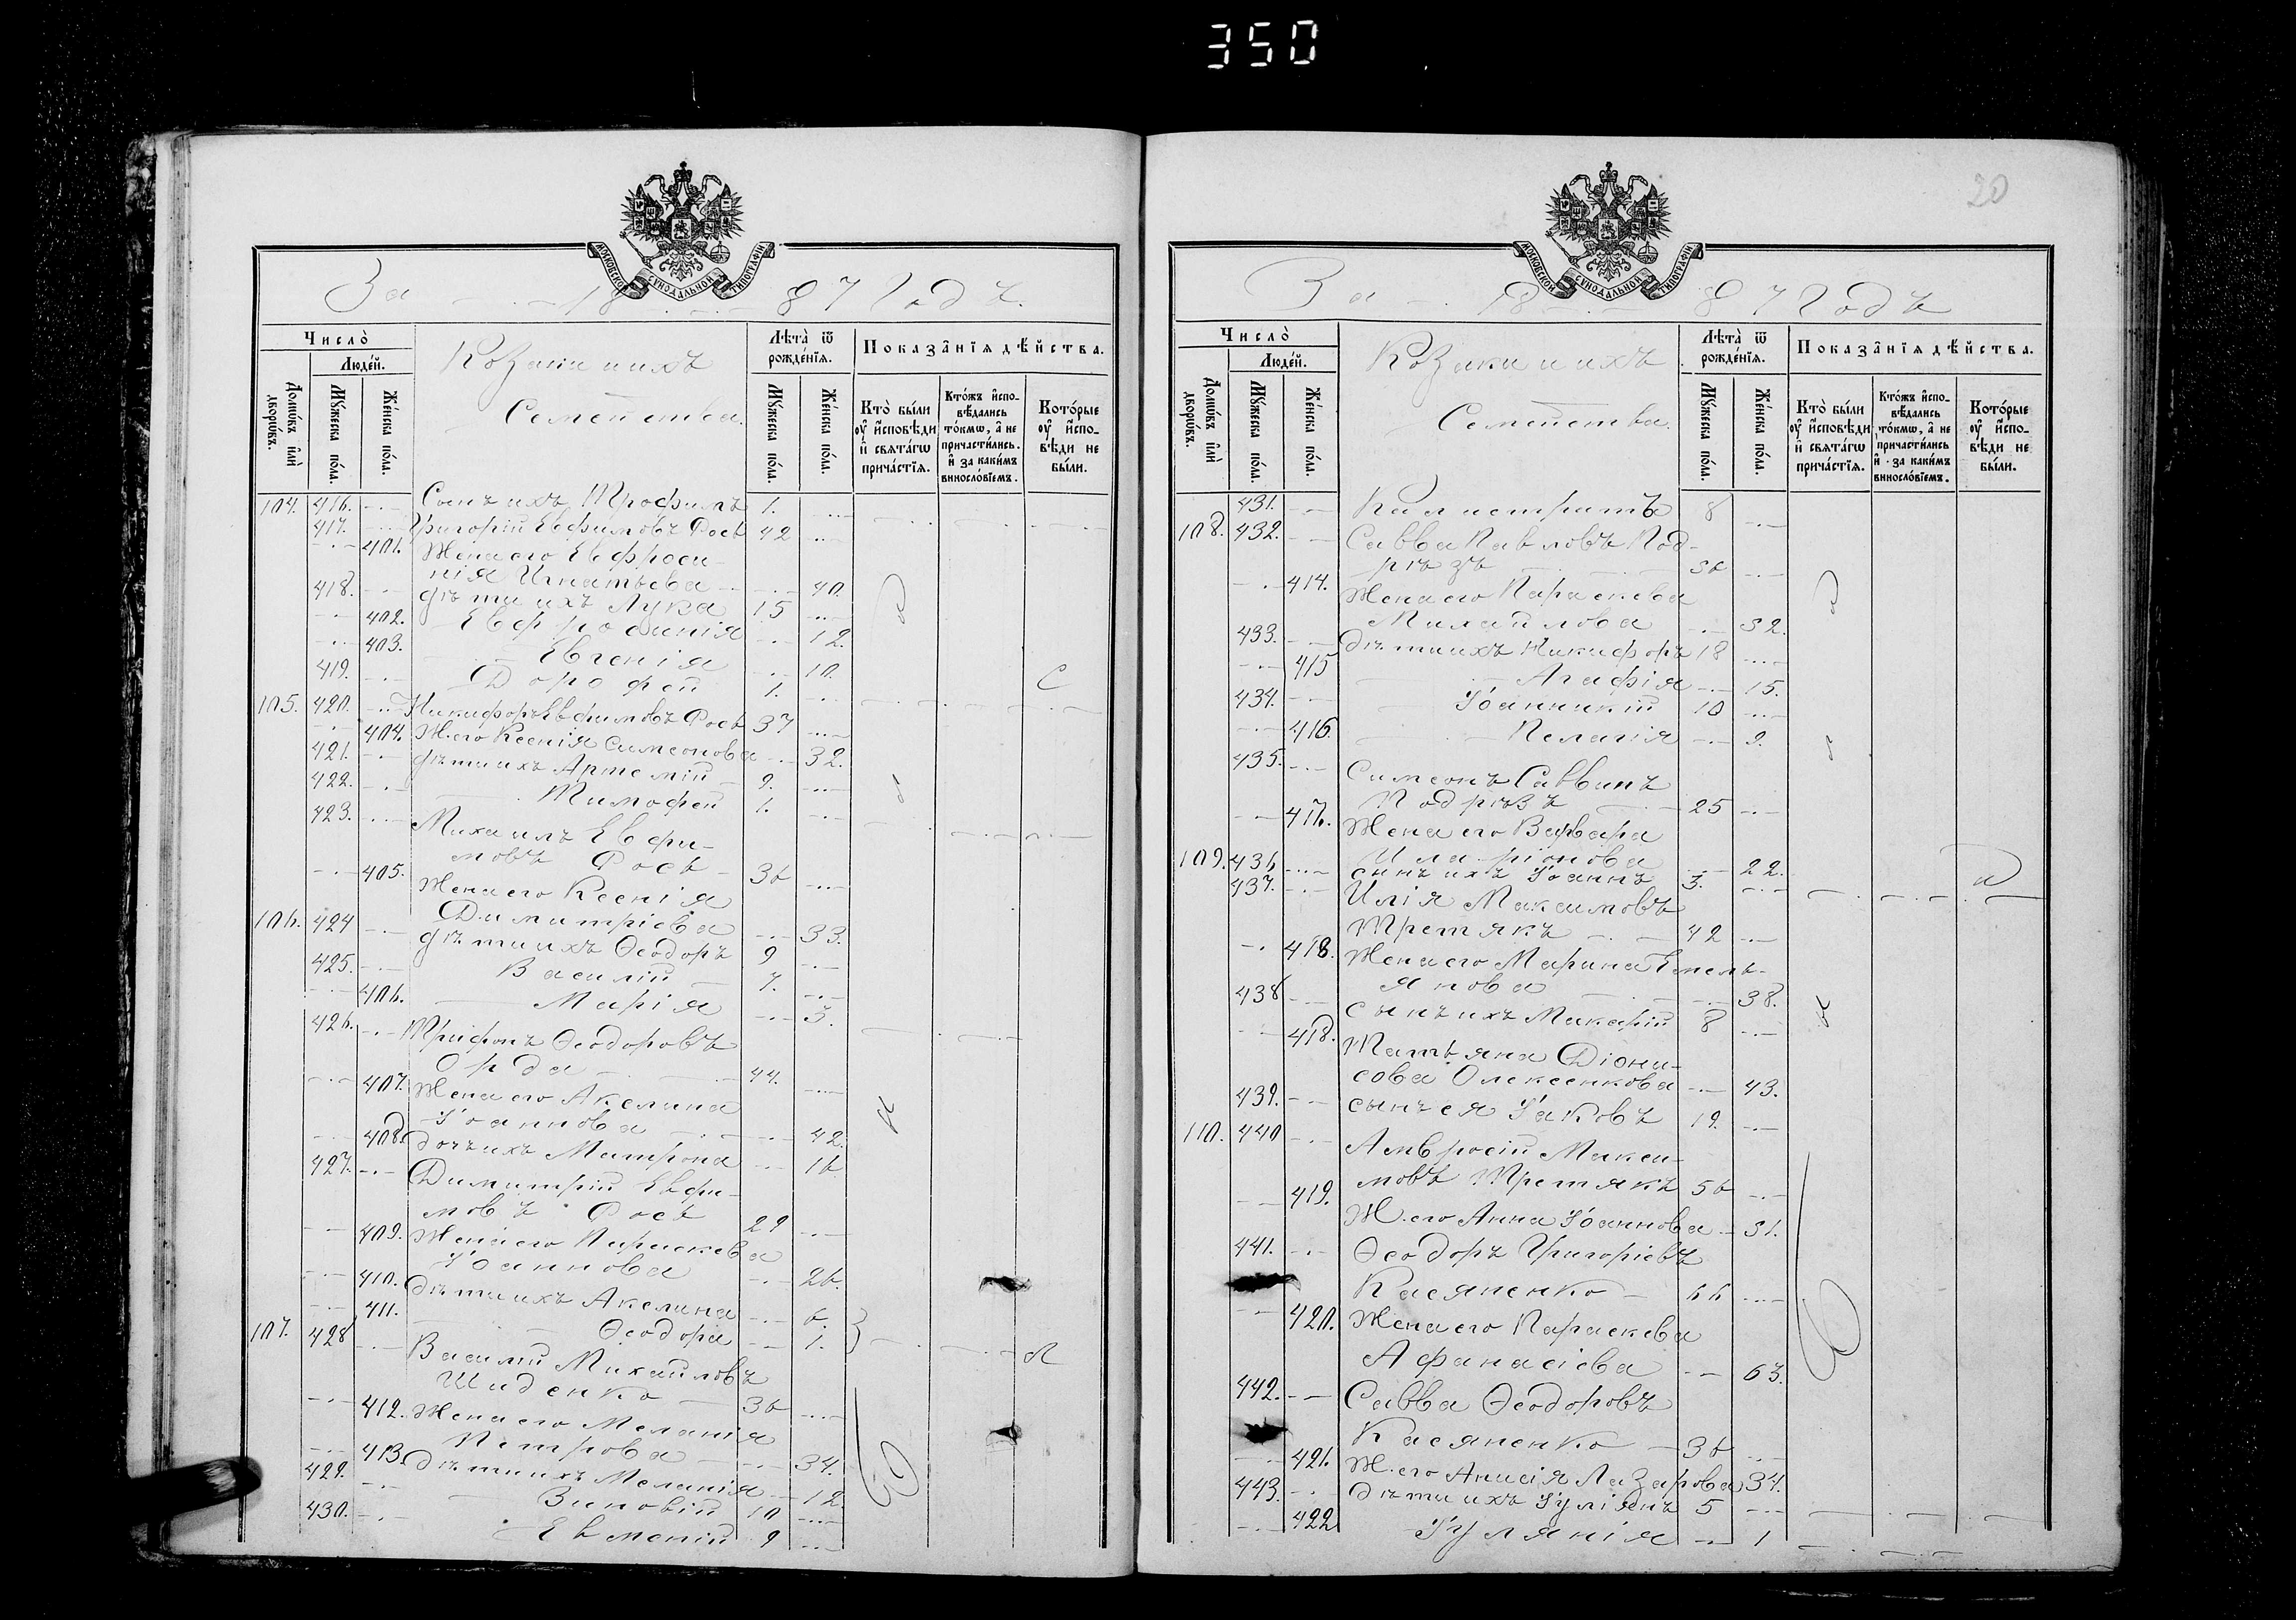 350
МОСКОВСКОЙ СѴНОДАЛЬНОЙ ТИПОГРАФІИ
За 1887 Годъ.
Число̀
Людéй.
Домѡ́въ и҆лѝ дворѡ́въ.
Мꙋ́жеска по́ла.
Же́нска по́ла.
Козаки и ихъ
Семейства.
Лѣта̀ ѿ рожде́нїѧ.
Мꙋ́жеска по́ла.
Же́нска по́ла.
Показа̑нїѧ дѣ́йства.
Кто̀ бы́ли ᲂу҆ и҆сповѣди и҆ свѧта́гѡ прича́стїѧ.
Кто́жъ и҆спо-вѣдались то́кмѡ, а҆ не причасти́лись. и҆ за каки́мъ винослóвїемъ.
Кото́рые ᲂу҆ и҆спо-вѣди не бы́ли.
104. 416. Сынъ ихъ Трофимъ 1.
417. Григорій Евфимовъ Рось 42
401. Жена его Евфроси-
нія Игнатьева 40
418. дѣти ихъ Лука 15
402. Евфросинія 12.
403. Евгенія 10.
419. Дорофей 1.
105. 420. Никифоръ Евфимовъ Рось 37
404. Ж. его Ксенія Симеонова 32.
421. дѣти ихъ Артемій 9.
422. Тимофей 1.
423. Михаилъ Евфи-
мовъ Рось 36
405. Жена его Ксенія
Димитріева 33.
106. 424 дѣти ихъ Ѳеодоръ 9
425. Василій 7.
406. Марія 3.
426. Трифонъ Ѳеодоровъ
Орда 44.
407. Жена его Акелина
Іоаннова 42.
408. дочь ихъ Матрона 16
427. Димитрій Евфи-
мовъ Рось 29
409. Жена его Параскева
Іоаннова 26.
410. дѣти ихъ Акелина 6.
411. Ѳеодора 1.
107. 428 Василій Михайловъ
Шиденко 36
412. Жена его Меланія
Петрова 34.
413. дѣти ихъ Меланія 12
429. Зиновій 10
430. Евменій 9
20
МОСКОВСКОЙ СѴНОДАЛЬНОЙ ТИПОГРАФІИ
За 1887 Годъ
Число̀
Людéй.
Домѡ́въ и҆лѝ дворѡ́въ.
Мꙋ́жеска по́ла.
Же́нска по́ла.
Козаки и ихъ
Семейства.
Лѣта̀ ѿ рожде́нїѧ.
Мꙋ́жеска по́ла.
Же́нска по́ла.
Показа̑нїѧ дѣ́йства.
Кто̀ бы́ли ᲂу҆ и҆сповѣди и҆ свѧта́гѡ прича́стїѧ.
Кто́жъ и҆спо-вѣдались то́кмѡ, а҆ не причасти́лись и҆ за каки́мъ винослóвїемъ.
Кото́рые ᲂу҆ и҆спо-вѣди не бы́ли.
431. Калистратъ 8
108. 432. Савва Павловъ Под-
рѣзъ 56
414. Жена его Параскева
Михайлова 52.
433. дѣти ихъ Никифоръ 18
415 Агафія 15.
434. Іоанникій 10
416. Пелагія 9.
435. Симеонъ Саввинъ
Подрѣзъ 25
417. Жена его Варвара
Иларіонова 22.
109. 436 сынъ ихъ Іоаннъ 3.
437. Илія Максимовъ
Третякъ 42
418. Жена его Марина Емель-
янова 38.
438 сынъ ихъ Макарій 8
418. Татьяна Діони-
сова Олексенкова 43.
439. сынъ ея Іаковъ 19.
110. 440 Амвросій Макси-
мовъ Третякъ 56
419. Ж. его Анна Іоаннова 51.
441. Ѳеодоръ Григоріевъ
Касяненко 66
420. Жена его Параскева
Афанасіева 63.
442. Савва Ѳеодоровъ
Касяненко 36
421. Ж. его Анисія Лазарова 34.
443. дѣти ихъ Іуліянъ 5
422 Іуліянія 1